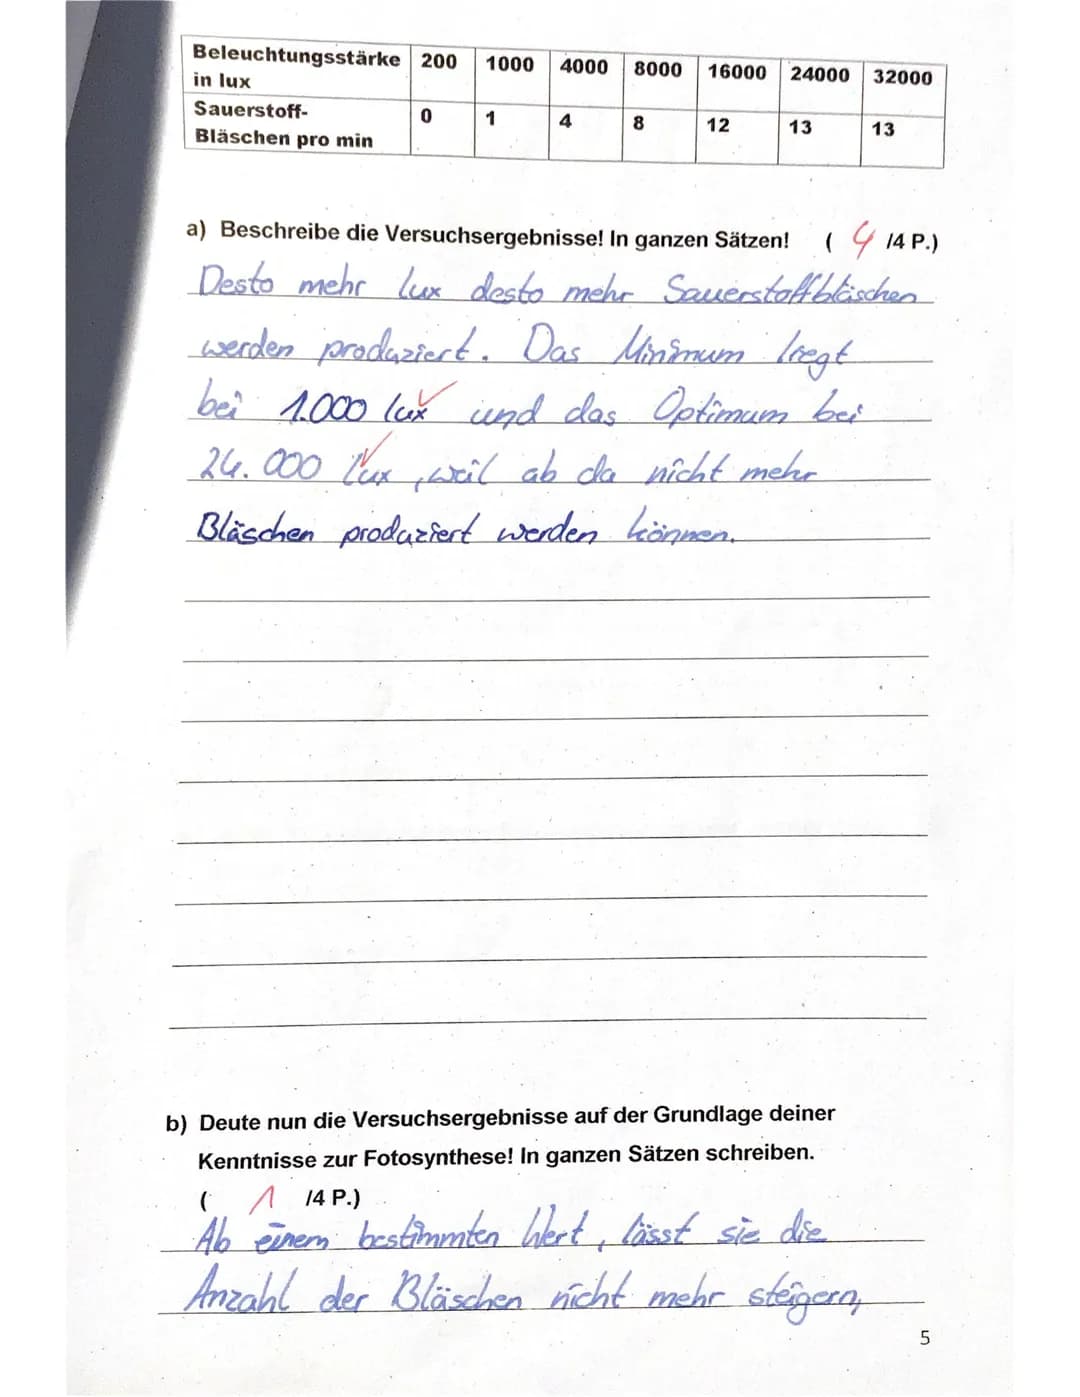 Beleuchtungsstärke in lux 200 1000 4000 8000 16000 24000 32000
Sauerstoff-Bläschen pro min 0 1 4 8 12 13 13
a) Beschreibe die Versuchsergebnisse! In ganzen Sätzen! ( 4 /4 P.)
Desto mehr lux desto mehr Sauerstoffbläschen
werden produziert. Das Minimum liegt
bei 1.000 lux und das Optimum bei
24.000 lux, weil ab da nicht mehr
Bläschen produziert werden können.
b) Deute nun die Versuchsergebnisse auf der Grundlage deiner
Kenntnisse zur Fotosynthese! In ganzen Sätzen schreiben.
( 1 /4 P.)
Ab einem bestimmten Wert, lässt sie die
Anzahl der Bläschen nicht mehr steigern,
5